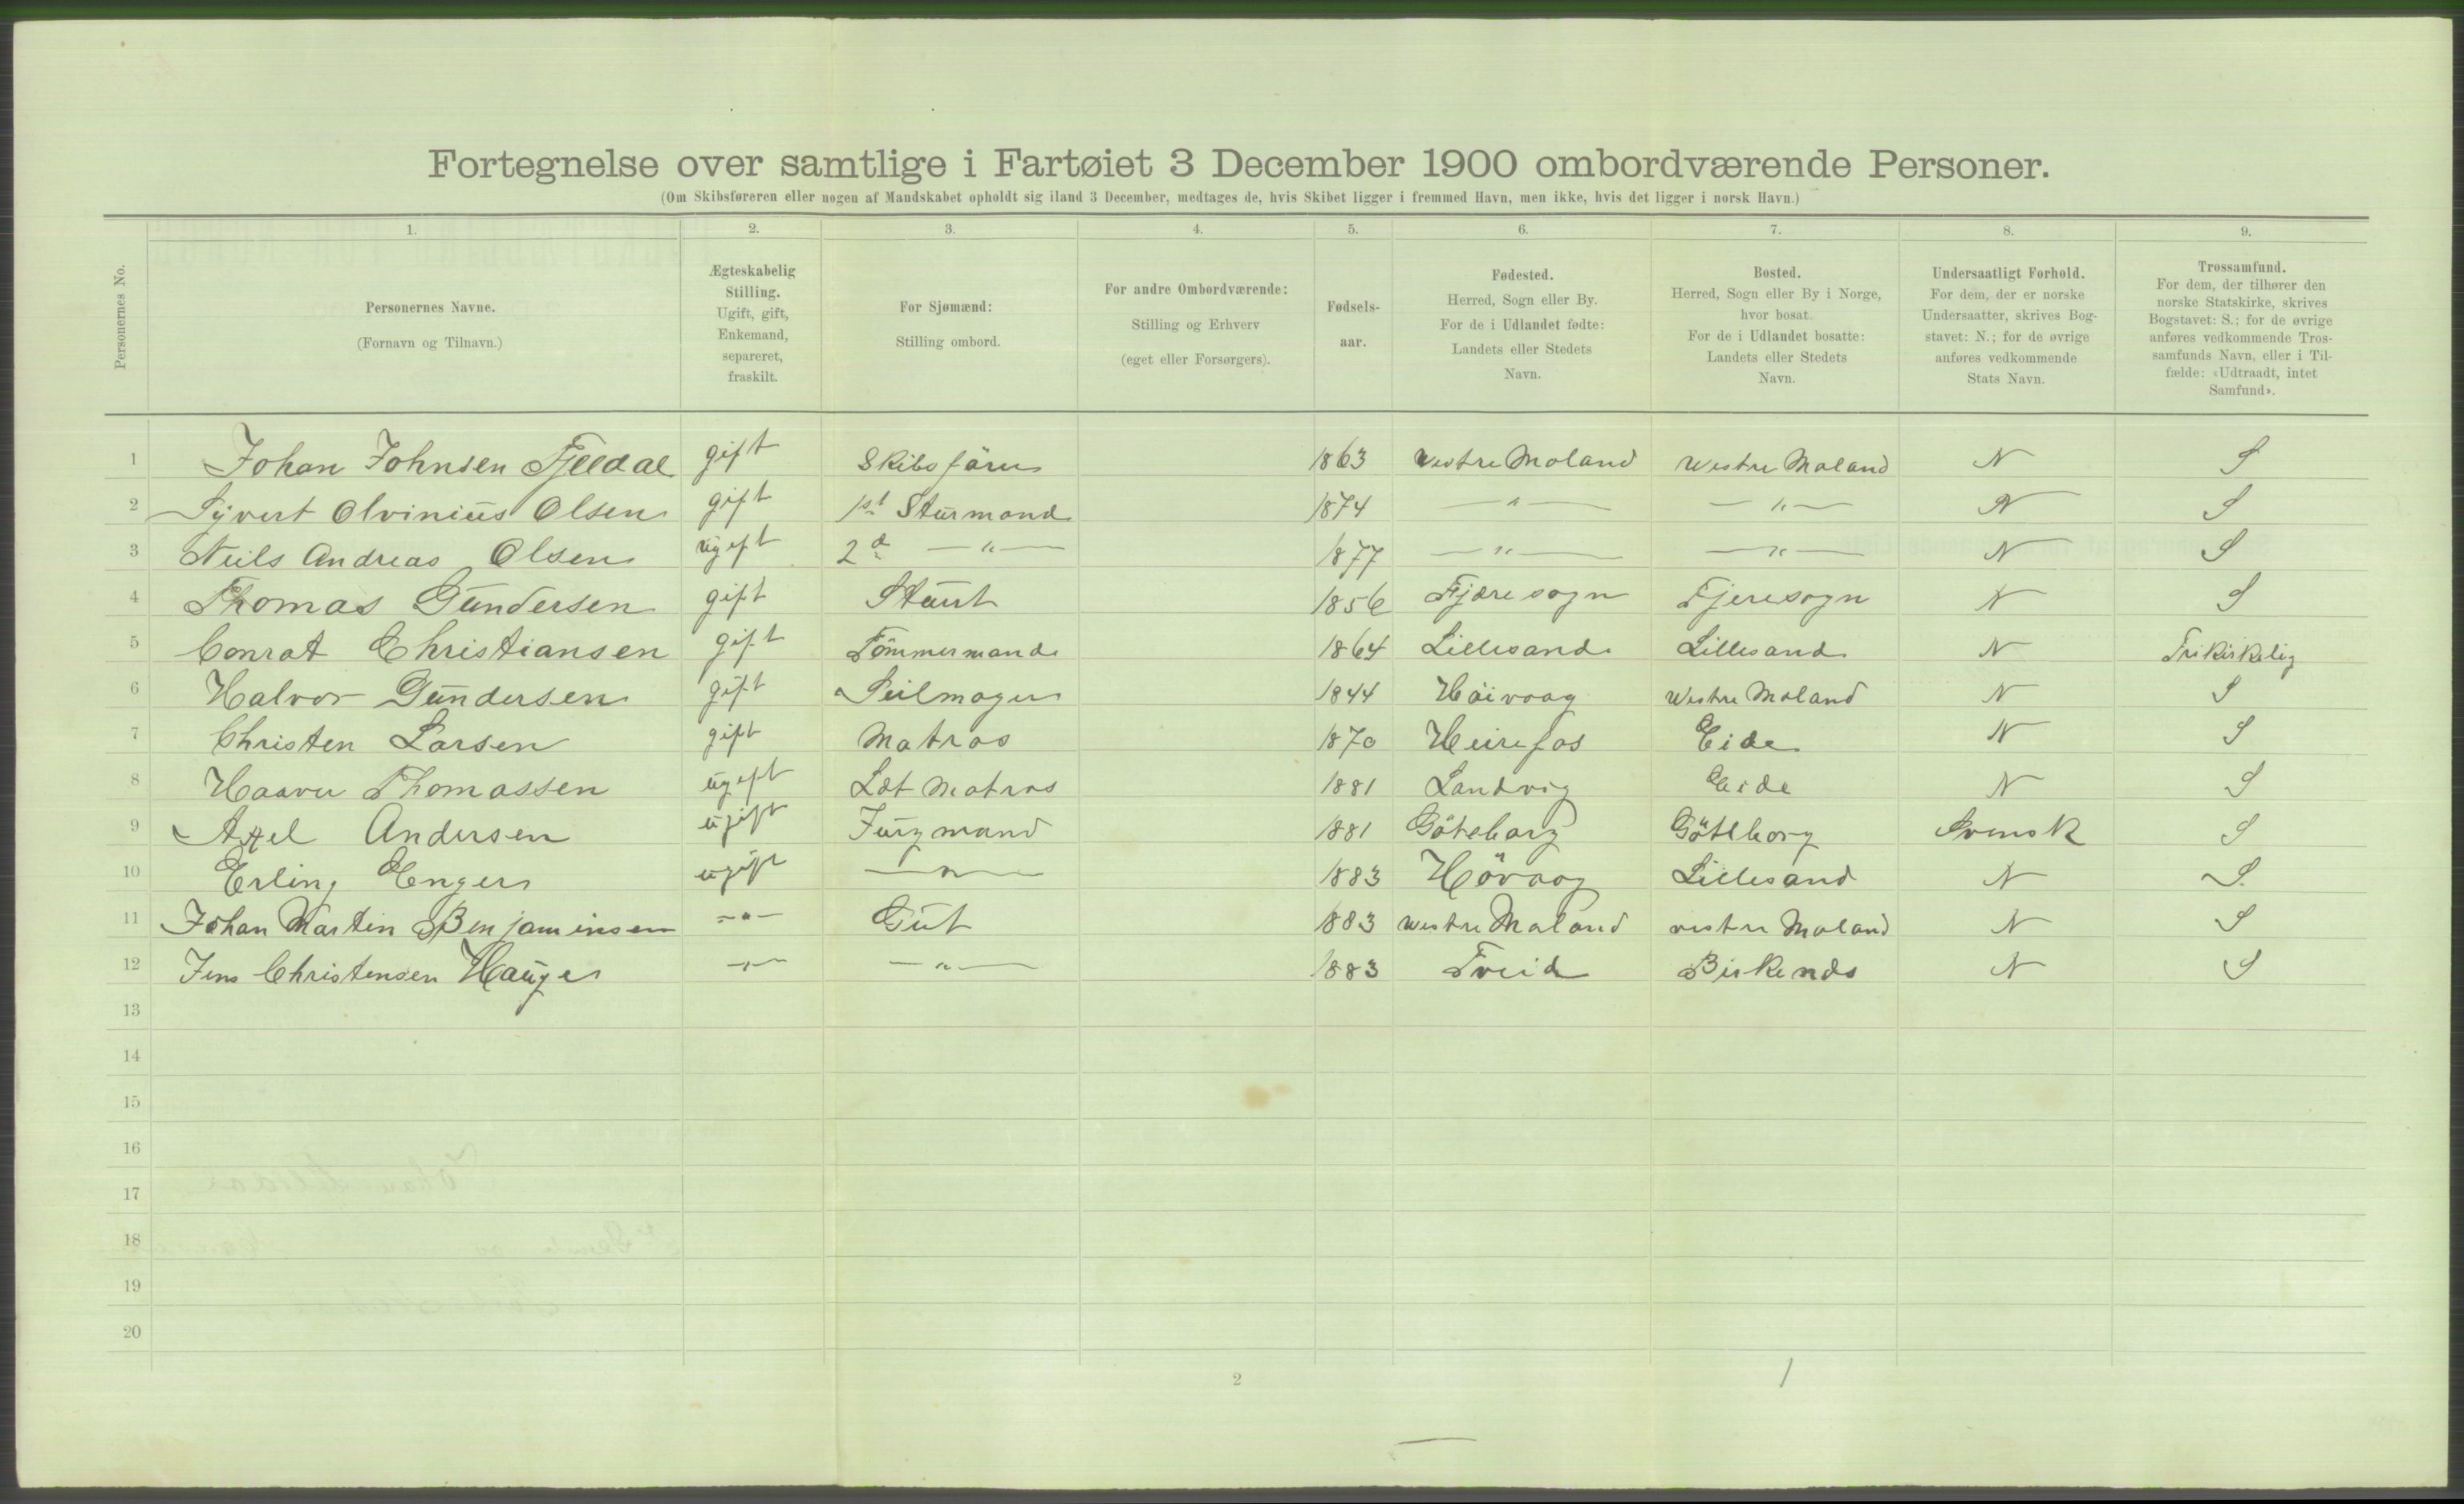 Fortegnelse over samtlige i Fartøiet 3 December 1900 ombordværende Personer.
(Om Skibsføreren eller nogen af Mandskabet opholdt sig iland 3 December, medtages de, hvis Skibet ligger i fremmed Havn, men ikke, hvis det ligger i norsk Havn.)
1. 2. 3. 4. 5. 6. 7. 8. 9.
Personernes No.
Personernes Navne.
(Fornavn og Tilnavn.)
Ægteskabelig
Stilling.
Ugift, gift,
Enkemand,
separeret,
fraskilt.
For Sjømænd:
Stilling ombord.
For andre Ombordværende:
Stilling og Erhverv
(eget eller Forsørgers).
Fødsels-
aar.
Fødested.
Herred, Sogn eller By.
For de i Udlandet fødte:
Landets eller Stedets
Navn.
Bosted.
Herred, Sogn eller By i Norge,
hvor bosat.
For de i Udlandet bosatte:
Landets eller Stedets
Navn.
Undersaatligt Forhold.
For dem, der er norske
Undersaatter, skrives Bog-
stavet: N.; for de øvrige
anføres vedkommende
Stats Navn.
Trossamfund.
For dem, der tilhører den
norske Statskirke, skrives
Bogstavet: S.; for de øvrige
anføres vedkommende Tros-
samfunds Navn, eller i Til-
fælde: «Udtraadt, intet
Samfund».
1 Johan Johnsen Fjeldal gift Skibsförer 1863 Vestre Moland Westre Moland N S
2 Syvert Olvinius Olsen gift 1st Sturmand 1874 — " — — " — N S
3 Niels Andreas Olsen ugift 2d — " — 1877 — " — — " — N S
4 Thomas Gundersen gift Stuut 1856 Fjære sogn Fjeresogn N S
5 Conrat Christiansen gift Tömmermand 1864 Lillesand Lillesand N Frikirkelig
6 Halvor Gundersen gift Seilmager 1844 Höivaag Westre Moland N S
7 Christen Larsen gift Matros 1870 Heirefos Eide N S
8 Haaver Thomassen ugift Let Matros 1881 Landvig Eide N S
9 Axel Andersen ugift Jungmand 1881 Göteborg Götlborg Svensk S
10 Erling Enger ugift — " — 1883 Hövaag Lillesand N S.
11 Johan Martin Benjaminsen — " — Gut 1883 Westre Moland vestre Moland N S
12 Jens Christensen Hauge — " — — " — 1883 Tveid Birkenæs N S
13
14
15
16
17
18
19
20
2 1